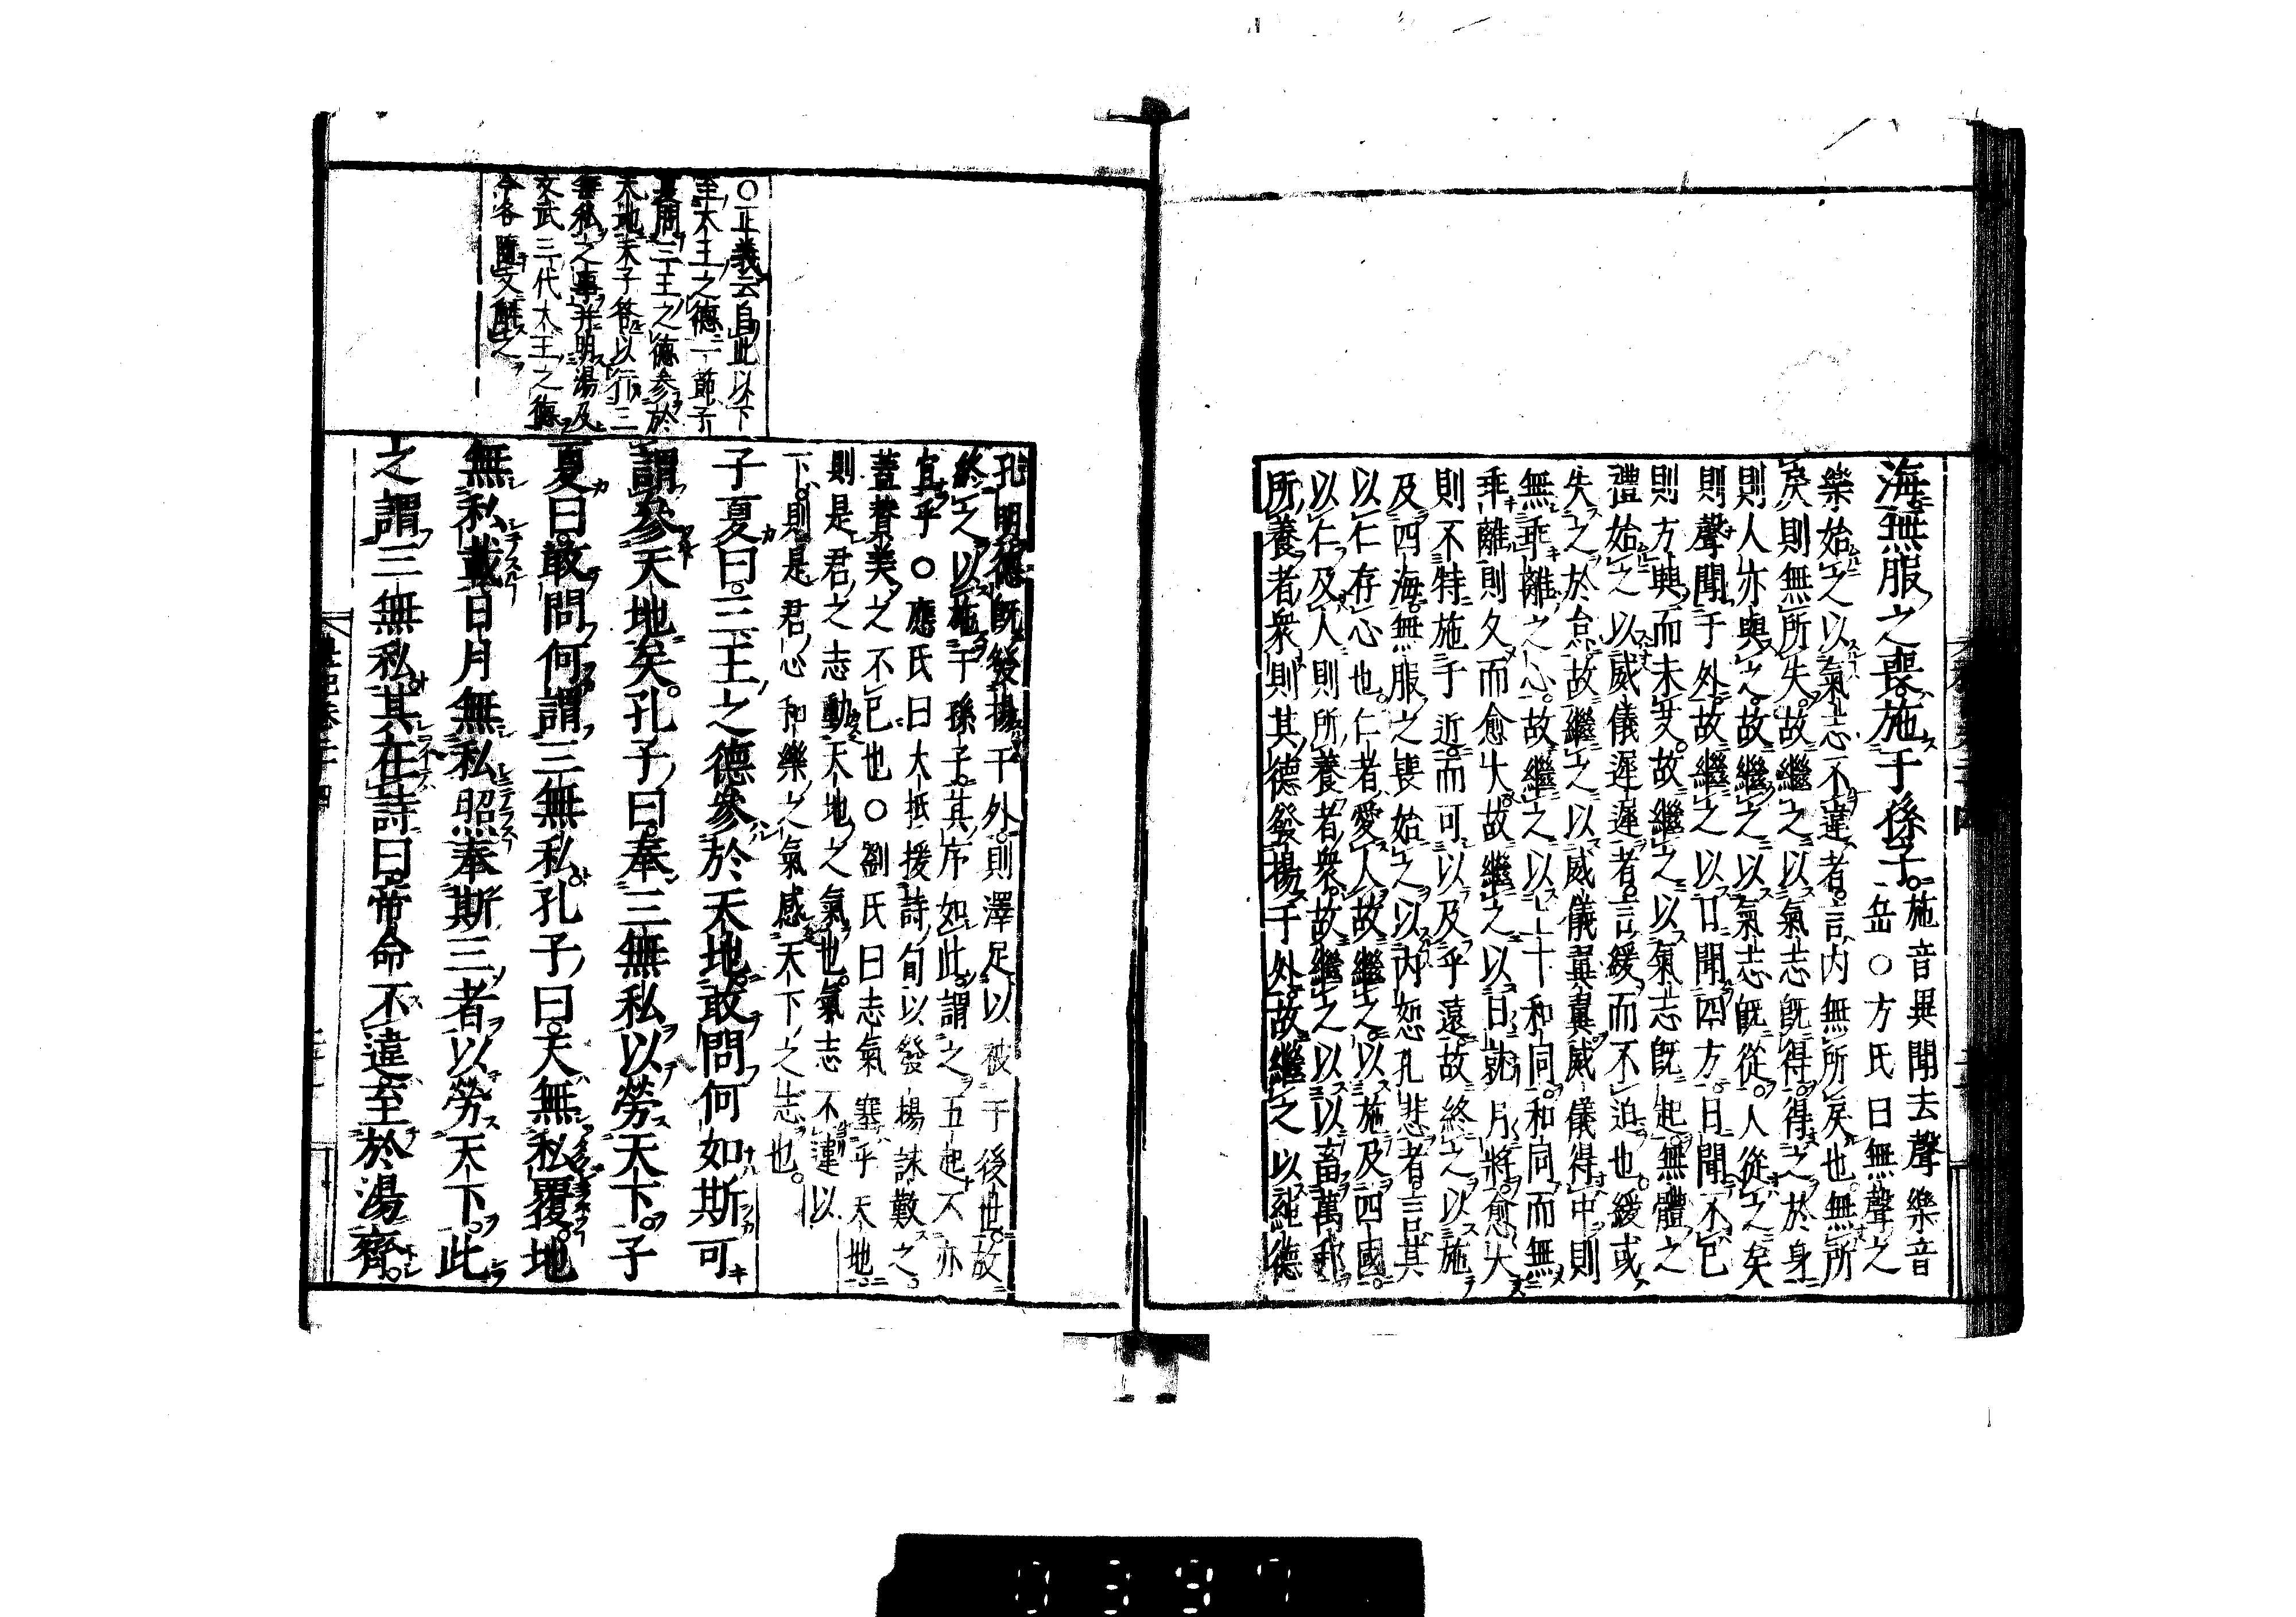 海無服之喪施于孫子施音異聞去聲樂音
岳○方氏曰無聲之
樂始之以氣志不違者言內無所戾也無所
戾則無所失故繼之以氣志既得得之於身
則人亦與之故繼之以氣志既從人從之矣
則聲聞于外故繼之以日聞四方日聞不已
則方興而未艾故繼之以氣志既起無體之
禮始之以威儀遲遲者言緩而不迫也緩或
失之於怠故繼之以威儀翼翼威儀得中則
無乖離之心故繼之以上下和同和同而無
乖離則久而愈大故繼之以日就月將愈大
則不特施于近而可以及乎遠故終之以施
及四海無服之喪始之以內恕孔悲者言其
以仁存心也仁者愛人故繼之以施及四國
以仁及人則所養者衆故繼之以以畜萬邦
所養者衆則其德發揚于外故繼之以純德
孔明德既發揚于外則澤足以被于後世故
終之以施于孫子其序如此謂之五起不亦
宜乎○應氏曰大抵援詩句以發揚詠歎之
蓋贊美之不已也○劉氏曰志氣塞乎天地
則是君之志動天地之氣也氣志不違以
下則是君心和樂之氣感天下之志也
子夏曰三王之德參於天地敢問何如斯可
謂參天地矣孔子曰奉三無私以勞天下子
夏曰敢問何謂三無私孔子曰天無私覆地
無私載日月無私照奉斯三者以勞天下此
之謂三無私其在詩曰帝命不違至於湯齊
○正義云自此以下
至大王之德一節子
夏問三王之德參於
天地夫子答以行三
無私之事并明湯及
文武三代大王之德
今各隨文解之
0397